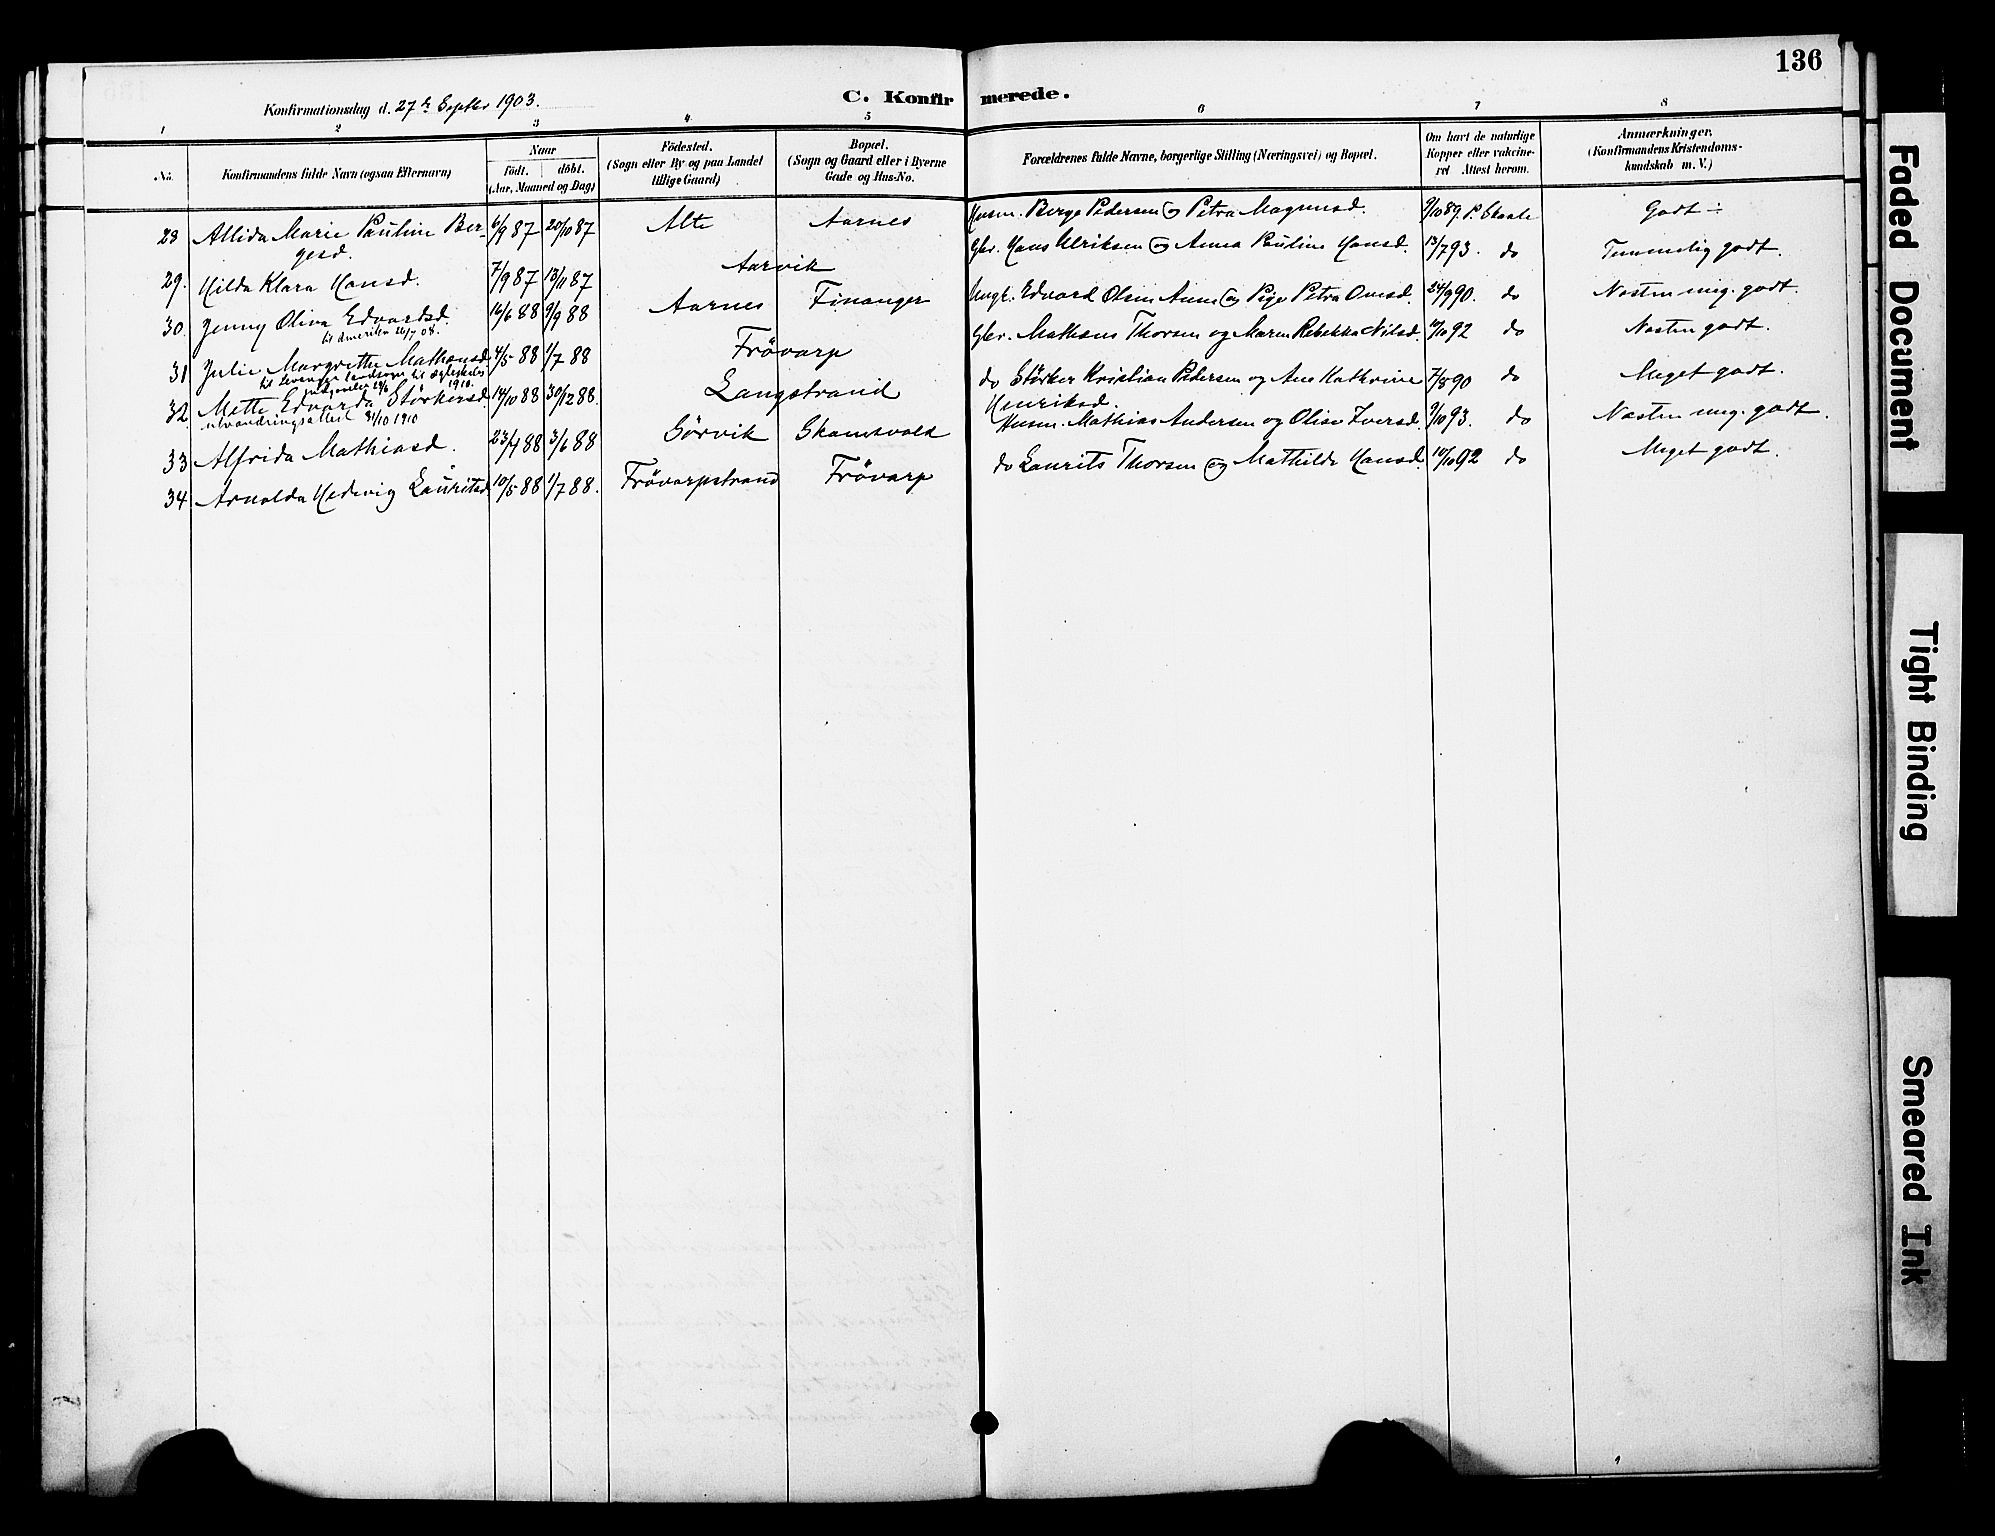 136
Konfirmationsdag d. 27de Septbr 1903.
C. Konfir merede.
1 2 3 4 5 6 7 8
No. Konfirmandens fulde Navn (ogsaa Efternavn)
Naar
födt. döbt.
(Aar, Maaned og Dag)
Födested.
(Sogn eller By og paa Landet
tillige Gaard)
Bopæl.
(Sogn og Gaard eller i Byerne
Gade og Hus-No.
Forældrenes fulde Navne, borgerlige Stilling (Næringsvei) og Bopæl.
Om havt de naturlige
Kopper eller vakcine-
ret Attest herom.
Anmærkninger,
(Konfirmandens Kristendoms-
kundskab m. V.)
28 Allida Marie Pauline Ber- 6/9 87 20/10 87 Alte Aarnes Husm. Berge Pedersen og Petra Magnusd. 9/10 89 P. Skaale Godt ÷
gesd.
29. Hilda Klara Hansd. 7/9 87 13/11 87 Aarvik Gbr. Hans Ulriksen og Anna Pauline Hansd. 13/7 93. do Temmelig godt.
30. Jenny Oliva Edvardsd. 16/6 88 9/9 88 Aarnes Finanger Ungk. Edvard Olsen Aune og Pige Petra Omsd. 24/9 90. do Næsten meg. godt.
til Amerika 26/7 08.
31 Julie Margrethe Mathæusd. 4/5 88 1/7 88 Frövarp Gbr. Mathæus Thorsen og Maren Rebekka Nilsd. 4/10 92 do Næsten godt.
til Levanger landsogn til Ægteskabs
1910.
32 Mette Edvarda Störkersd. 14/10 88 30/12 88. Langstrand do Störker Kristian Pedersen og Ane Kathrine 7/8 90 do Meget godt.
Henriksd.
utvandringsattest 31/10 1910
33 Alfrida Mathiasd. 23/4 88 3/6 88 Sörvik Skamsvold Husm. Mathias Andersen og Olise Iversd. 9/10 93. do Næsten meg. godt.
34 Arnolda Hedevig Lauritsd. 10/5 88 1/7 88. Frövarpstrand Frövarp do Laurits Thorsen og Mathilde Hansd. 10/10 92 do Meget godt.
Faded Document
Tight Binding
Smeared Ink